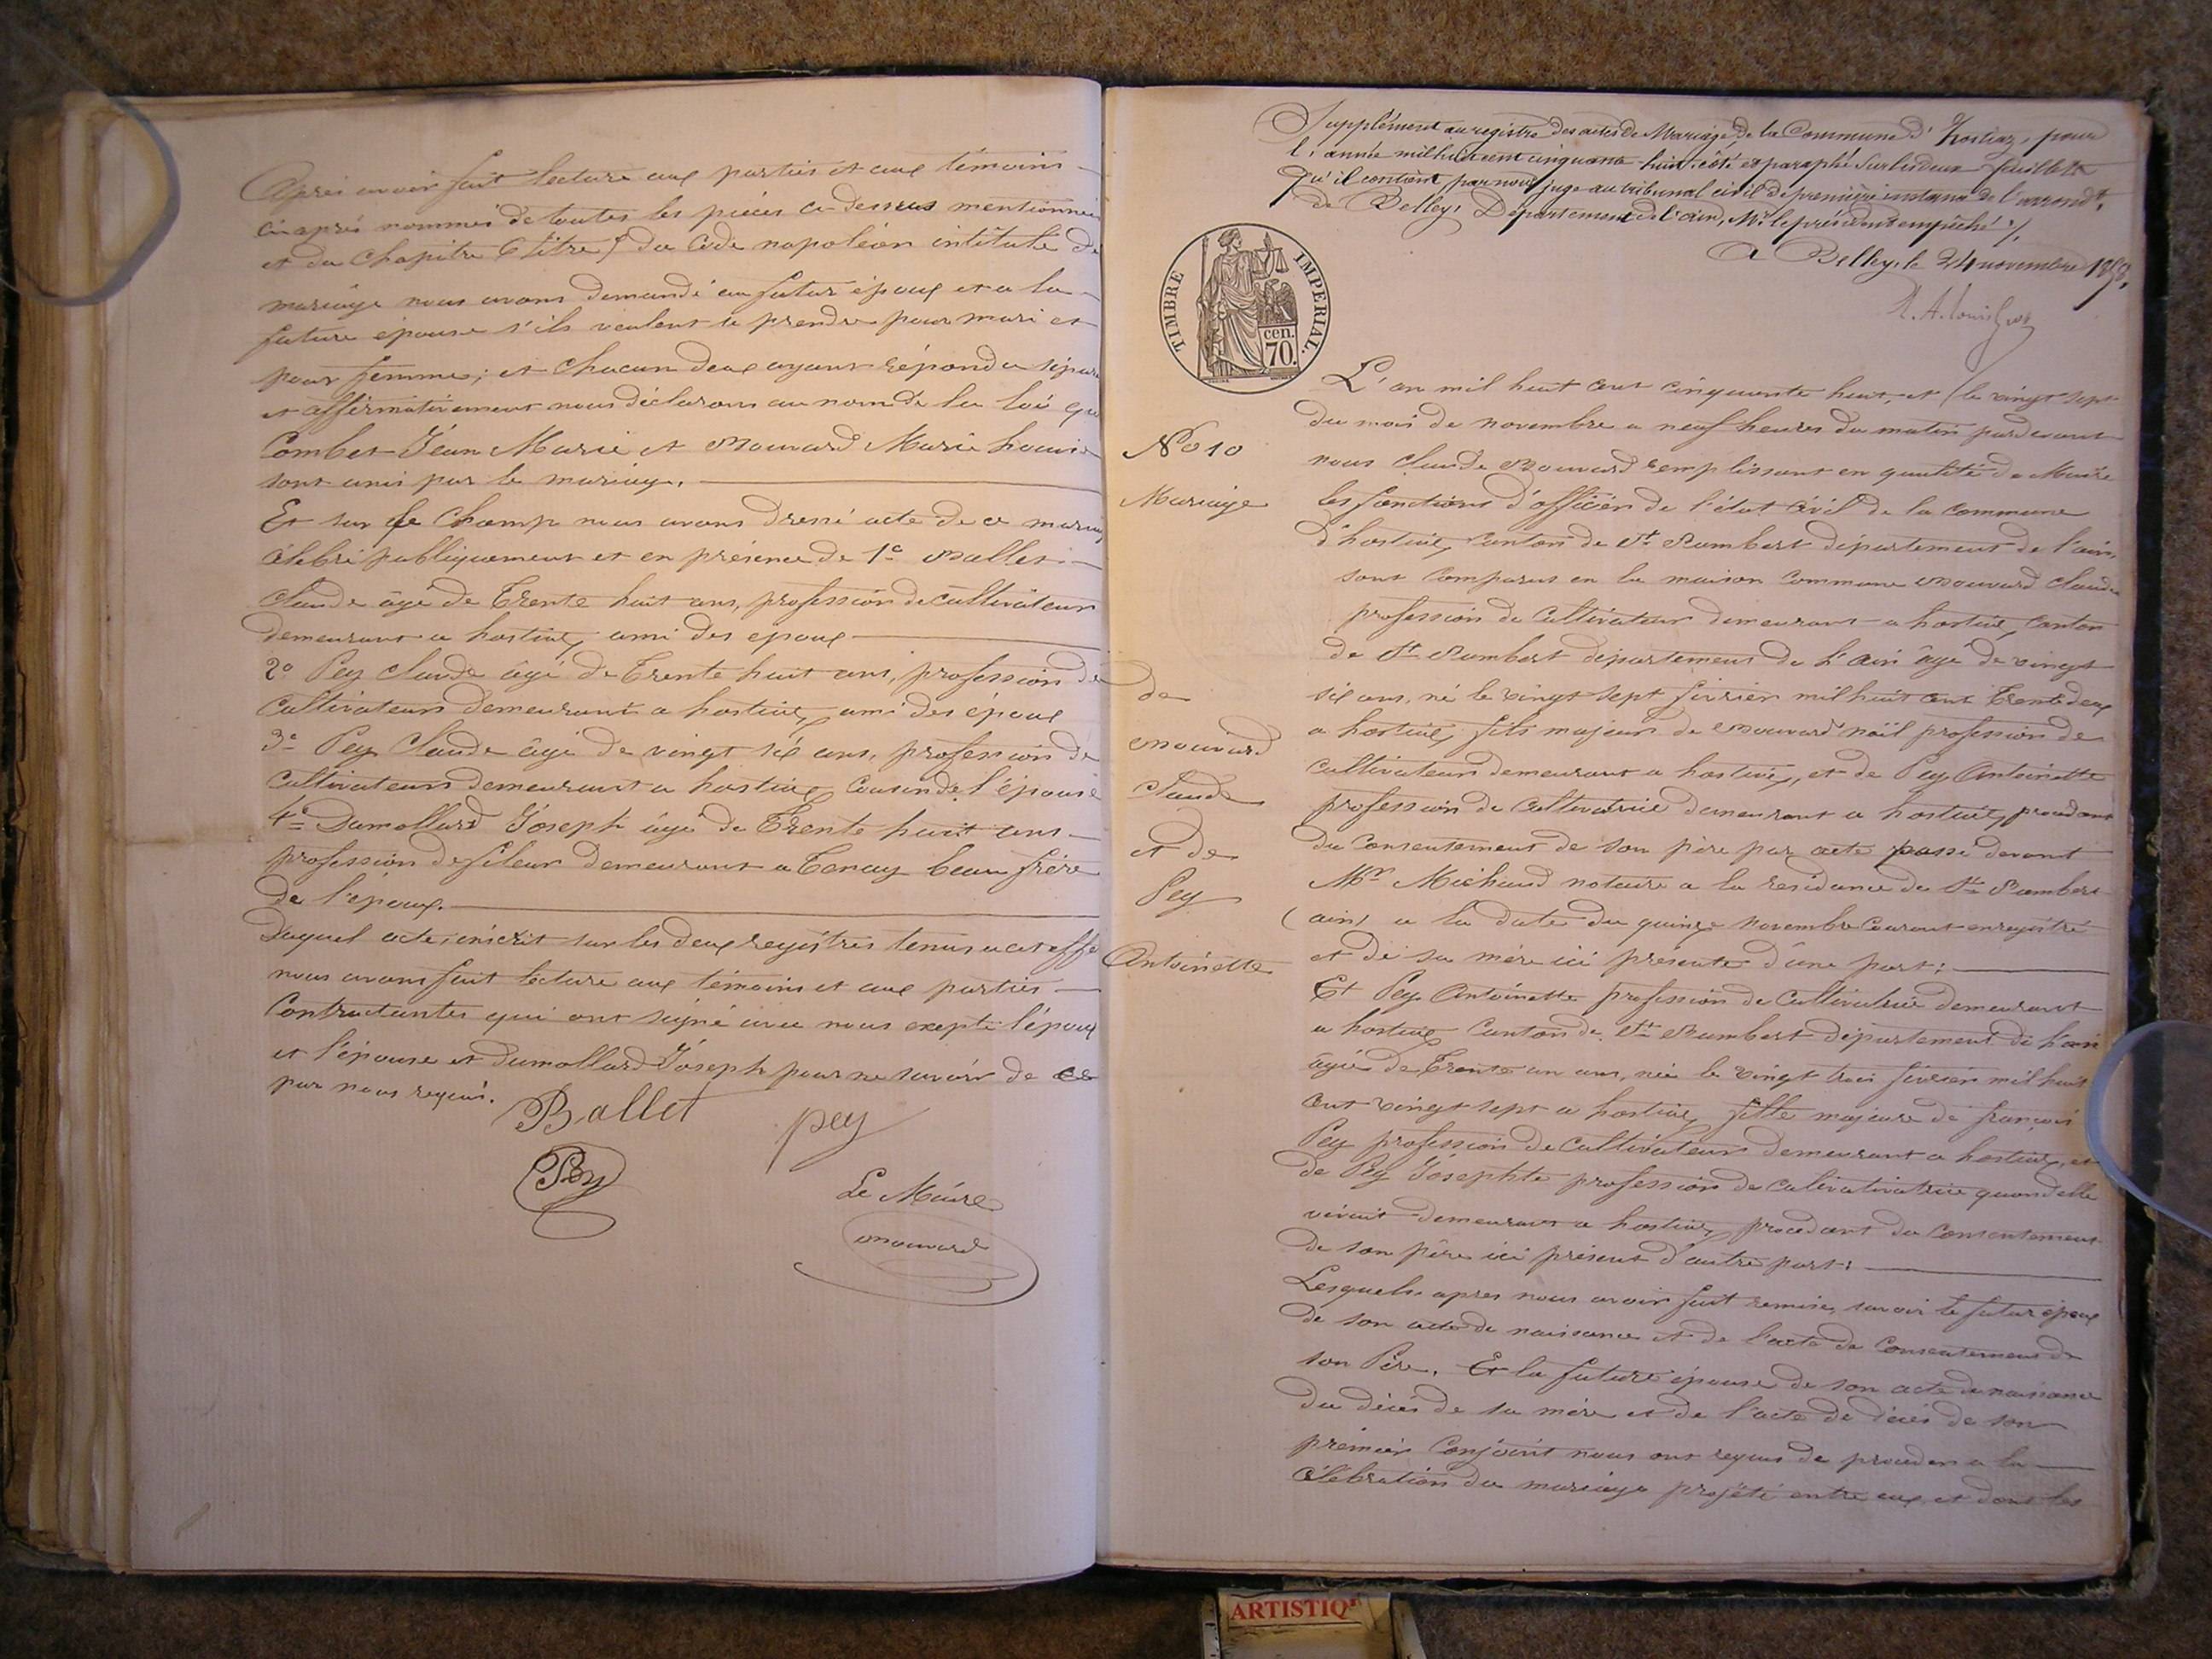 Après avoir fait lecture aux parties et aux témoins
ci après nommés de toutes les pièces ci-dessus mentionnées
et du Chapitre 6 titre 5 du Code napoléon intitulé du
mariage nous avons demandé au futur époux et a la
future épouse s'ils veulent se prendre pour mari et
pour femme; et chacun deux ayant répondu séparé
et affirmativement nous déclarons au nom de la loi que
Combet Jéan Marie et Mouvard Marie Louise
sont unis par le mariage.
Et sur le Champ nous avons dressé acte de ce mariage
célébré publiquement et en présence de 1º Ballet
Claude âgé de Trente huit ans, profession de cultivateur
demeurant a hostiaz, ami des epoux
2º Pey Claude âgé de Trente huit ans, profession de
Cultivateur demeurant a hostiaz, ami des époux
3º Pey Claude âgé de vingt six ans, profession de
cultivateur demeurant a hostiaz Cousin de l'épouse
4º Dumollard Joseph âgé de Trente huit ans
profession de fileur demeurant a Tenay beau frère
de l'époux.
Duquel acte, inscrit sur les deux registres tenus a cet effet
nous avons fait lecture aux témoins et aux parties
Contractantes qui ont signé avec nous exepté l'époux
et l'épouse et Dumollard Joseph pour ne savoir de ce
par nous requis.
Ballet
pey
Pey
Le Maire
Mouvard
Supplément au registre des actes de Mariage, de la Commune d'hostiaz, pour
l'année mil huit cent cinquante-huit, coté et paraphé sur les deux feuillets
qu'il contient, par nous juge au tribunal civil de première instance de l'arrondt.
de Belley, Département de l'ain, Mr. le président empêché ./.
A Belley, le 24 novembre 1858.
TIMBRE IMPERIAL.
cen.
70.
Nº 10
Mariage
de
Mouvard
Claude
et de
Pey
Antoinette
L'an mil huit cent cinquante huit, et le vingt sept
du mois de novembre a neuf heures du matin pardevant
nous Claude Mouvard remplissant en qualité de Maire
les fonctions d'officier de l'état civil de la commune
d'hostiaz, canton de St Rambert département de l'ain,
sont comparus en la maison Commune Mouvard Claude
profession de Cultivateur demeurant a hostiaz, canton
de St Rambert département de l'ain âgé de vingt
six ans, né le vingt sept février mil huit cent Trente deux
a hostiaz, fils majeur de Mouvard noël profession de
cultivateur demeurant a hostiaz, et de Pey Antoinette
profession de cultivatrice demeurant a hostiaz, procédant
du Consentement de son père par acte passé devant
Mr Michaud notaire a la residance de St Rambert
(ain) a la date du quinze novembre Courant enregistré
et de sa mère ici présente d'une part;
Et Pey Antoinette profession de Cultivatrice demeurant
a hostiaz Canton de St Rambert département de l'ain
âgée de Trente un ans, née le vingt trois février mil huit
cent vingt sept a hostiaz, fille majeure de françois
Pey profession de Cultivateur demeurant a hostiaz, et
de Pey Josephte profession de culivativatrice quand elle
vivait demeurant a hostiaz, procédant du Consentement
de son père ici présent d'autre part;
Lesquels apres nous avoir fait remise, savoir le futur époux
de son acte de naissance et de l'acte de Consentement de
son Père. Et la future épouse de son acte de naissance
du décès de sa mère et de l'acte de décès de son
premier Conjoint nous ont requis de procéder a la
célébration du mariage projété entre eux et dont les
ARTISTIQ